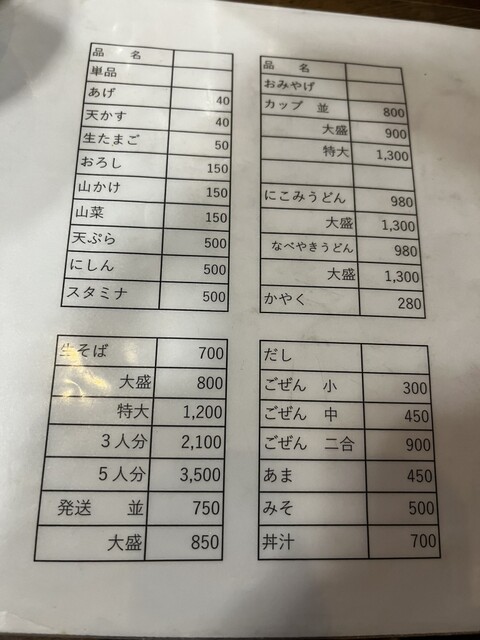 品　名
単品
あげ 40
天かす 40
生たまご 50
おろし 150
山かけ 150
山菜 150
天ぷら 500
にしん 500
スタミナ 500
品　名
おみやげ
カップ　並 800
大盛 900
特大 1,300
にこみうどん 980
大盛 1,300
なべやきうどん 980
大盛 1,300
かやく 280
生そば 700
大盛 800
特大 1,200
３人分 2,100
５人分 3,500
発送　並 750
大盛 850
だし
ごぜん　小 300
ごぜん　中 450
ごぜん　二合 900
あま 450
みそ 500
丼汁 700